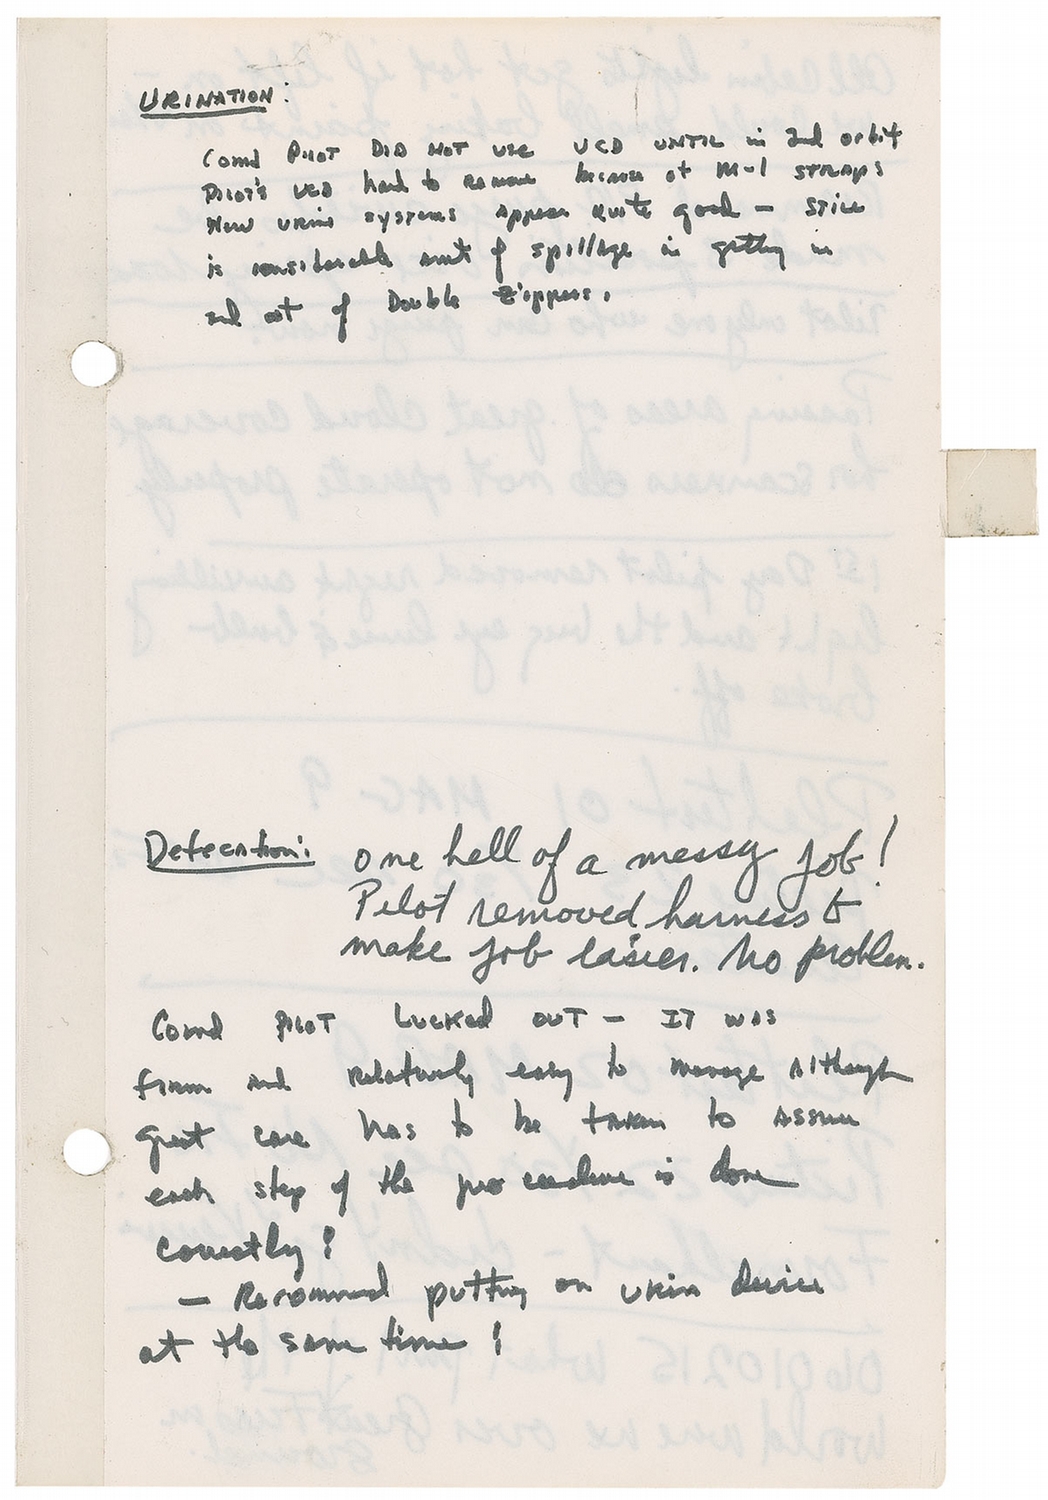 URINATION:
Comd PILOT DID NOT use UCD UNTIL in 2nd orbit
PILOT'S UCD hard to remove because of M-1 STRAPS
New urine systems appear quite good — STILL
is considerable amts of spillage in getting in
and out of Double Zippers.
Defecation: one hell of a messy job!
Pilot removed harness to
make job easier. No problem.
Comd PILOT LUCKED OUT — IT WAS
firm and relatively easy to manage although
great care has to be taken to assure
each step of the procedure is done
correctly!
— Recommend putting on urin device
at the same time!